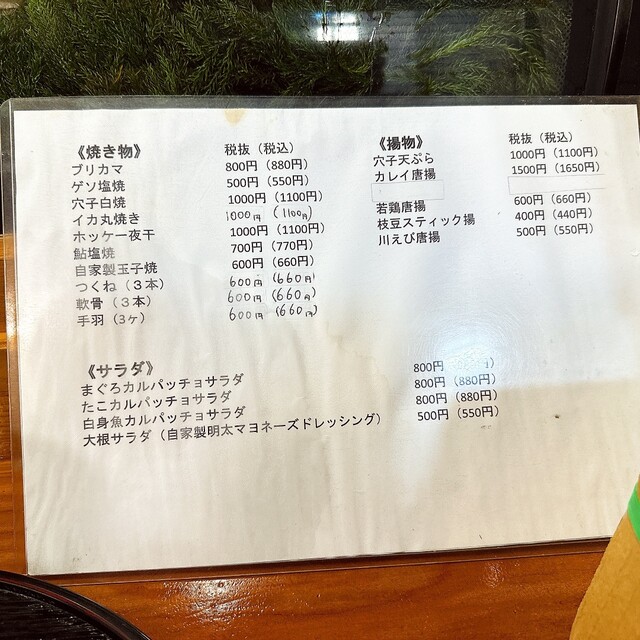 《焼き物》 税抜（税込）
ブリカマ 800円（880円）
ゲソ塩焼 500円（550円）
穴子白焼 1000円（1100円）
イカ丸焼き 1000円（1100円）
ホッケ一夜干 1000円（1100円）
鮎塩焼 700円（770円）
自家製玉子焼 600円（660円）
つくね（３本） 600円（660円）
軟骨（３本） 600円（660円）
手羽（3ヶ） 600円（660円）
《揚物》 税抜（税込）
穴子天ぷら 1000円（1100円）
カレイ唐揚 1500円（1650円）
若鶏唐揚 600円（660円）
枝豆スティック揚 400円（440円）
川えび唐揚 500円（550円）
《サラダ》
まぐろカルパッチョサラダ 800円
たこカルパッチョサラダ 800円（880円）
白身魚カルパッチョサラダ 800円（880円）
大根サラダ（自家製明太マヨネーズドレッシング） 500円（550円）